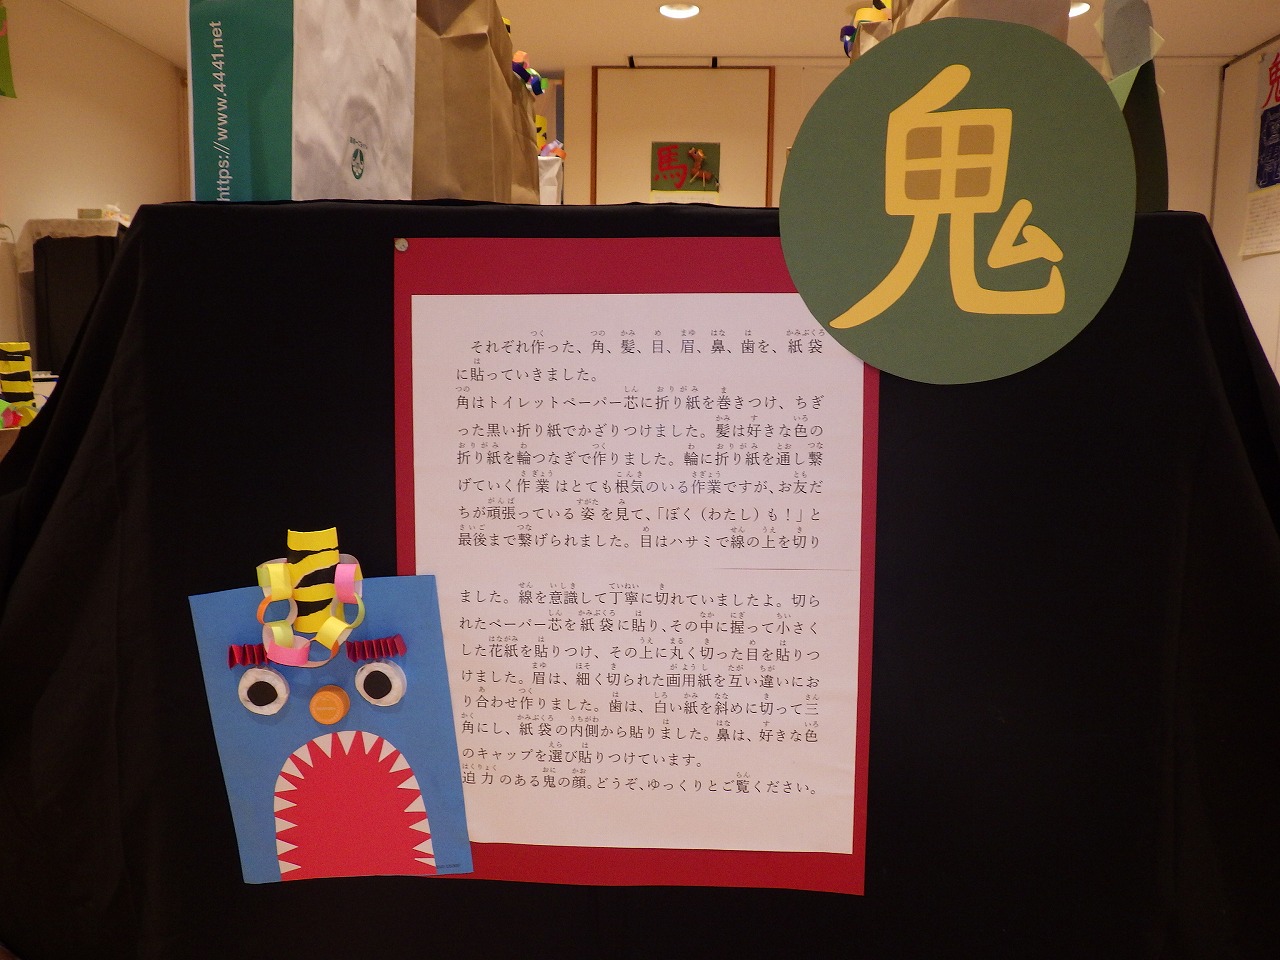 https://www.4441.net
馬
鬼
それぞれ作った、角、髪、目、眉、鼻、歯を、紙袋
に貼っていきました。
角はトイレットペーパー芯に折り紙を巻きつけ、ちぎ
った黒い折り紙でかざりつけました。髪は好きな色の
折り紙を輪つなぎで作りました。輪に折り紙を通し繋
げていく作業はとても根気のいる作業ですが、お友だ
ちが頑張っている姿を見て、「ぼく(わたし)も!」と
最後まで繋げられました。目はハサミで線の上を切り
ました。線を意識して丁寧に切れていましたよ。切ら
れたペーパー芯を紙袋に貼り、その中に握って小さく
した花紙を貼りつけ、その上に丸く切った目を貼りつ
けました。眉は、細く切られた画用紙を互い違いにお
り合わせ作りました。歯は、白い紙を斜めに切って三
角にし、紙袋の内側から貼りました。鼻は、好きな色
のキャップを選び貼りつけています。
迫力のある鬼の顔。どうぞ、ゆっくりとご覧ください。